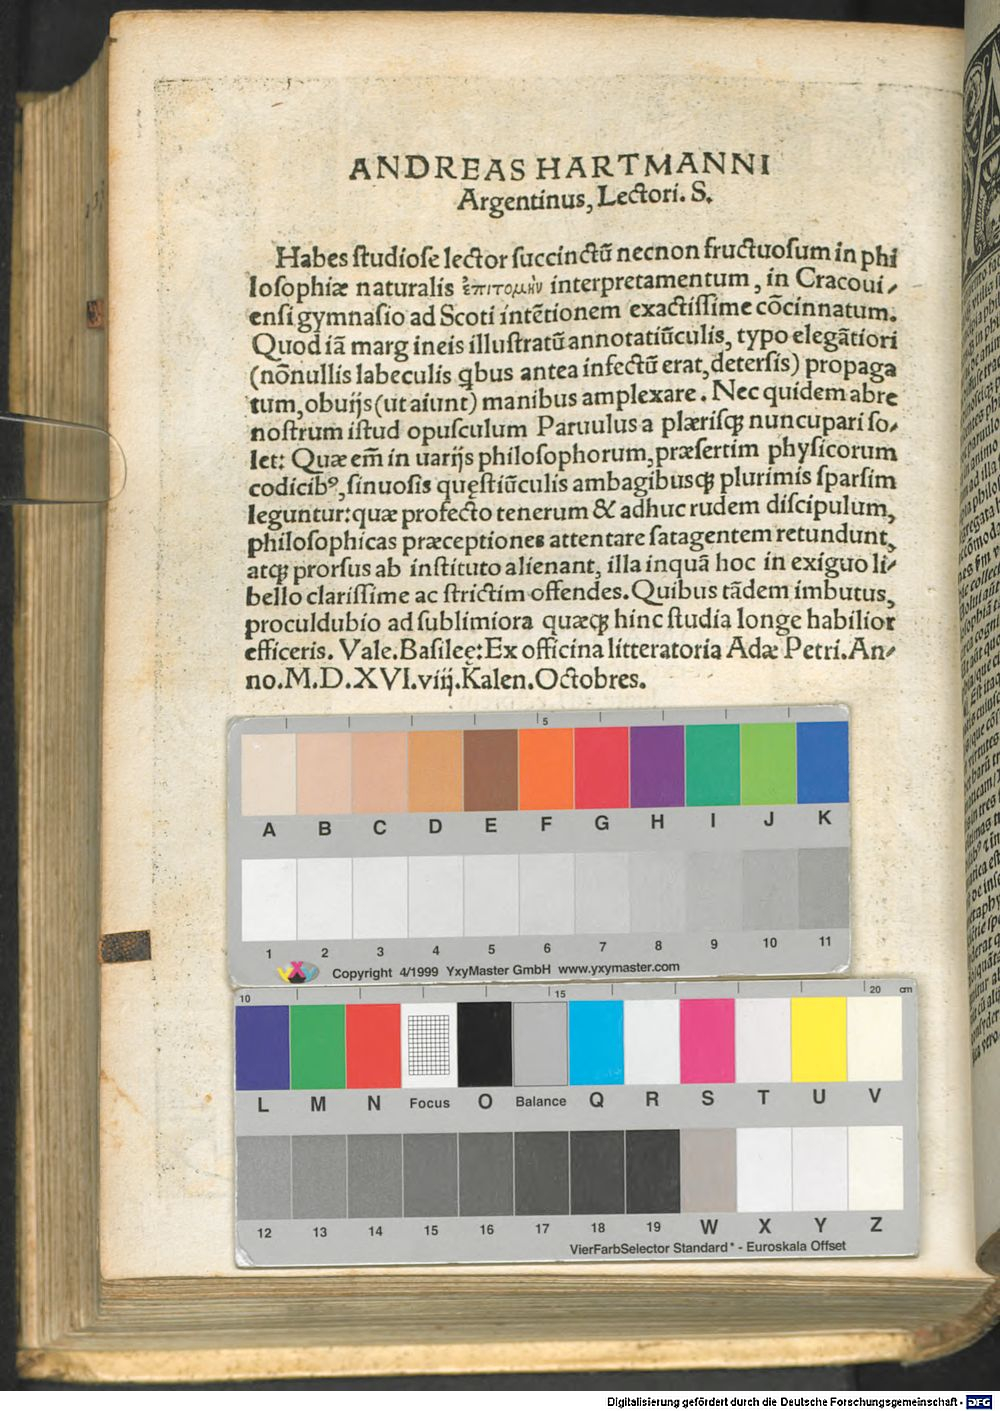 ANDREAS HARTMANNI
Argentinus, Lectori. S.
Habes ſtudioſe lector ſuccinctũ necnon fructuoſum in phi
loſophiæ naturalis ἐπιτομὴν interpretamentum, in Cracoui⸗
enſi gymnaſio ad Scoti intẽtionem exactiſſime cõcinnatum.
Quod iã margineis illuſtratũ annotatiũculis, typo elegãtiori
(nõnullis labeculis qbus antea infectũ erat, deterſis) propaga
tum, obuijs (ut aiunt) manibus amplexare. Nec quidem abre
noſtrum iſtud opuſculum Paruulus a plæriſq; nuncupari ſo⸗
let: Quæ em̃ in uarijs philoſophorum, præſertim phyſicorum
codicibꝰ, ſinuoſis quęſtiũculis ambagibusq; plurimis ſparſim
leguntur: quæ profecto tenerum & adhuc rudem diſcipulum,
philoſophicas præceptiones attentare ſatagentem retundunt,
atq; prorſus ab inſtituto alienant, illa inquã hoc in exiguo li⸗
bello clariſſime ac ſtrictim offendes. Quibus tãdem imbutus,
proculdubio ad ſublimiora quæq; hinc ſtudia longe habilior
efficeris. Vale. Baſileę: Ex officina litteratoria Adæ Petri. An⸗
no. M.D.XVI. viij. Kalen. Octobres.
5
A B C D E F G H I J K
1 2 3 4 5 6 7 8 9 10 11
yxy Copyright 4/1999 YxyMaster GmbH www.yxymaster.com
10 15 20 cm
L M N Focus O Balance Q R S T U V
12 13 14 15 16 17 18 19 W X Y Z
VierFarbSelector Standard* - Euroskala Offset
Digitalisierung gefördert durch die Deutsche Forschungsgemeinschaft - DFG